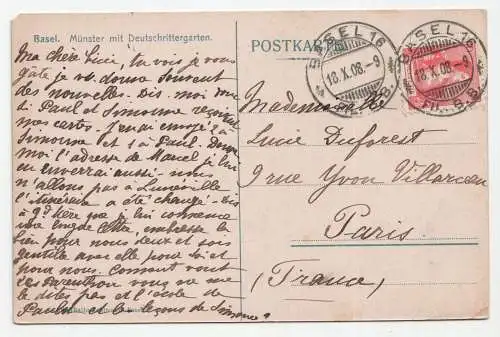 Basel. Münster mit Deutschrittergarten.
POSTKARTE
BASEL 16
18.X.08.-9
FIL. B.B.
BASEL 16
18.X.08.-9
FIL. B.B.
Ma chère Luci, tu vois je vous
gâte je vs donne souvent
des nouvelles. Dis-moi si
Paul et Simonne reçoivent
mes cartes. J'en ai envoyé à
Simonne et 1 à Paul. Donne
moi l'adresse de Marcel je lui
en enverrai aussi. nous
n'allons pas à Luneville
l'itinéraire a été changé. dis
à gd Mère que je lui
une longue lettre, embrasse la
bien pour nous deux et sois
gentille avec elle pour toi et
pour nous. Comment vont
les vous ne me
le dites pas et l'école de
Paul et les leçons de Simonne?
Mademoiselle
Lucie Duforest
9 rue Yvon Villarceau
Paris
(France)